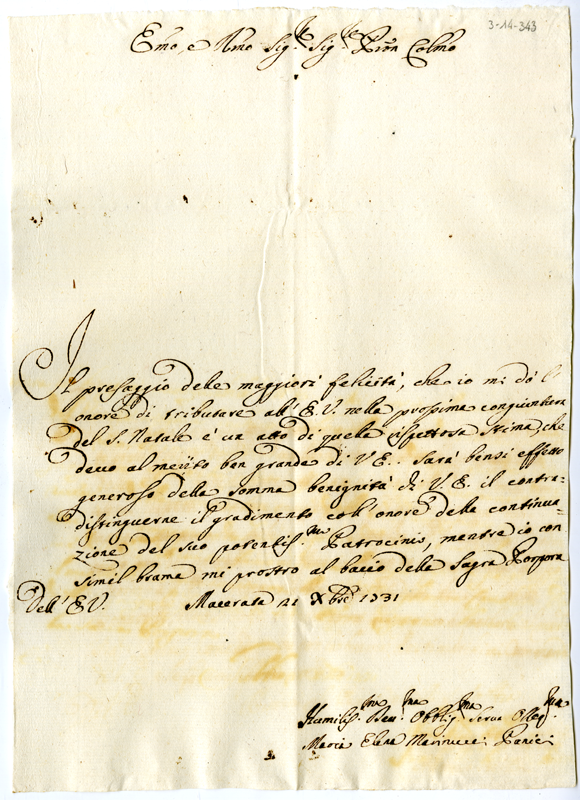 3-14-343
Emo, e Rmo Sig.re Sig.re Pron Colmo
Il presaggio delle maggiori felicità, che io mi dò l'
onore di tributare all' E.V. nella prossima congiuntura
del S. Natale è un atto di quella rispettosa stima, che
devo al merito ben grande di V.E.. Sarà bensì effetto
generoso della somma benignità di V.E. il contra-
distinguerne il gradimento coll' onore della continua-
zione del suo potentiss.mo Patrocinio, mentre io con
simil brama mi prostro al baccio della Sagra Porpora
Dell' E.V. Macerata 21 Xbre 1731
Humiliss.ma Dev.ma Obblig.ma Serva Osseq.ma
Maria Elena Marrucci Panici